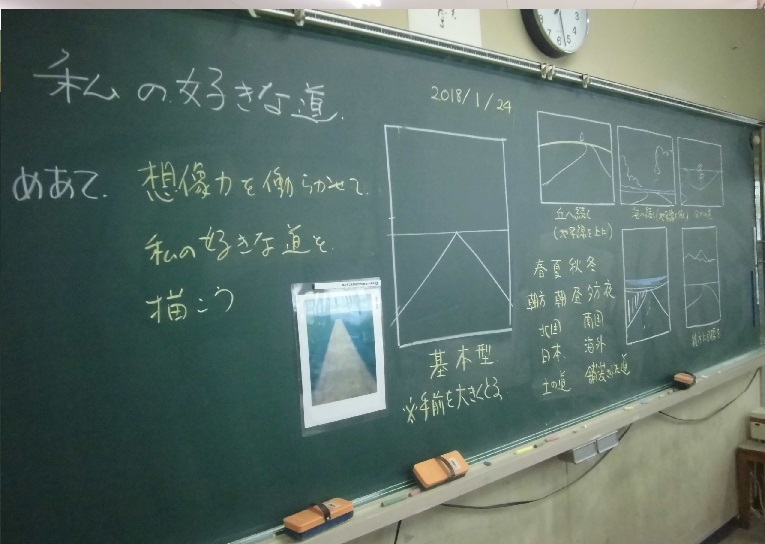 私の好きな道.
2018/1/24
めあて. 想像力を働らかせて.
私の好きな道を
描こう
基本型
※手前を大きくとる
丘へ続く
(地平線を上に)
春夏秋冬
朝 昼 夕方 夜
北国 南国
日本. 海外
土の道 舗装された道